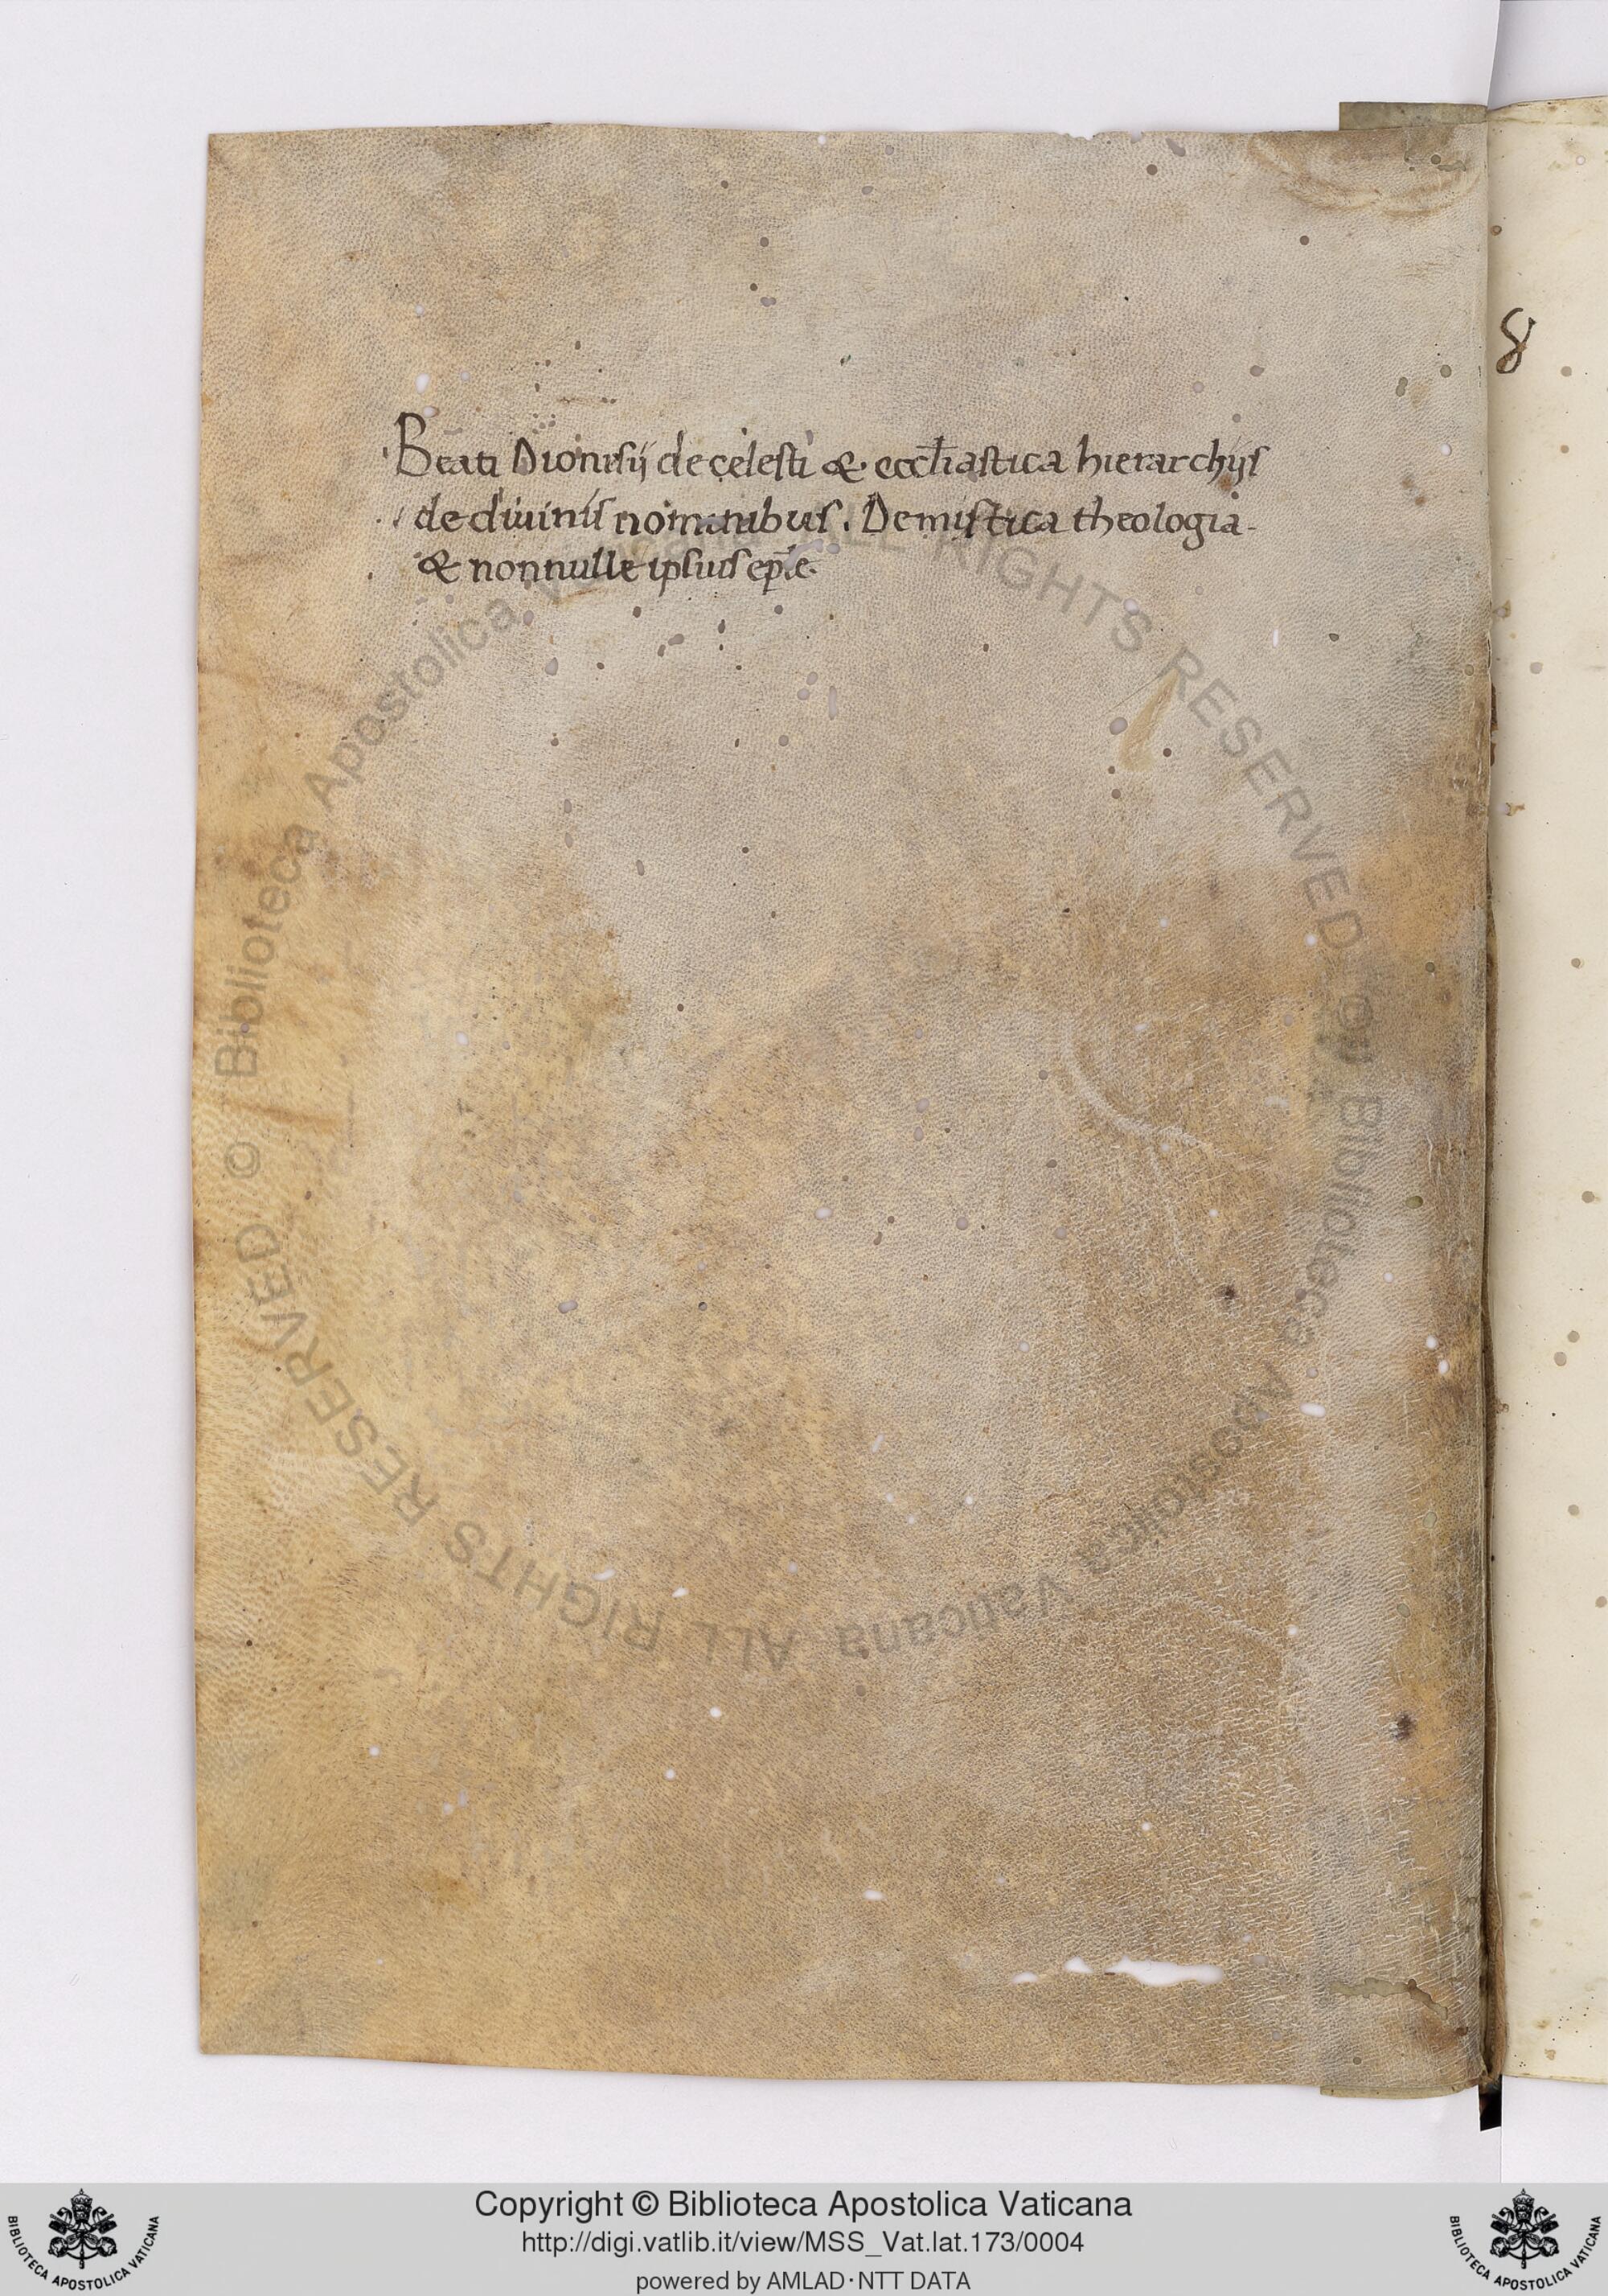 Beati Dionisij de celesti & eccl̄iastica hierarchijs
de diuinis nominibus. De mistica theologia.
& non nulle ipsius ep̄le.
8
© Biblioteca Apostolica Vaticana ALL RIGHTS RESERVED © Biblioteca Apostolica Vaticana ALL RIGHTS RESERVED
Copyright © Biblioteca Apostolica Vaticana
http://digi.vatlib.it/view/MSS_Vat.lat.173/0004
powered by AMLAD·NTT DATA
BIBLIOTECA APOSTOLICA VATICANA
BIBLIOTECA APOSTOLICA VATICANA